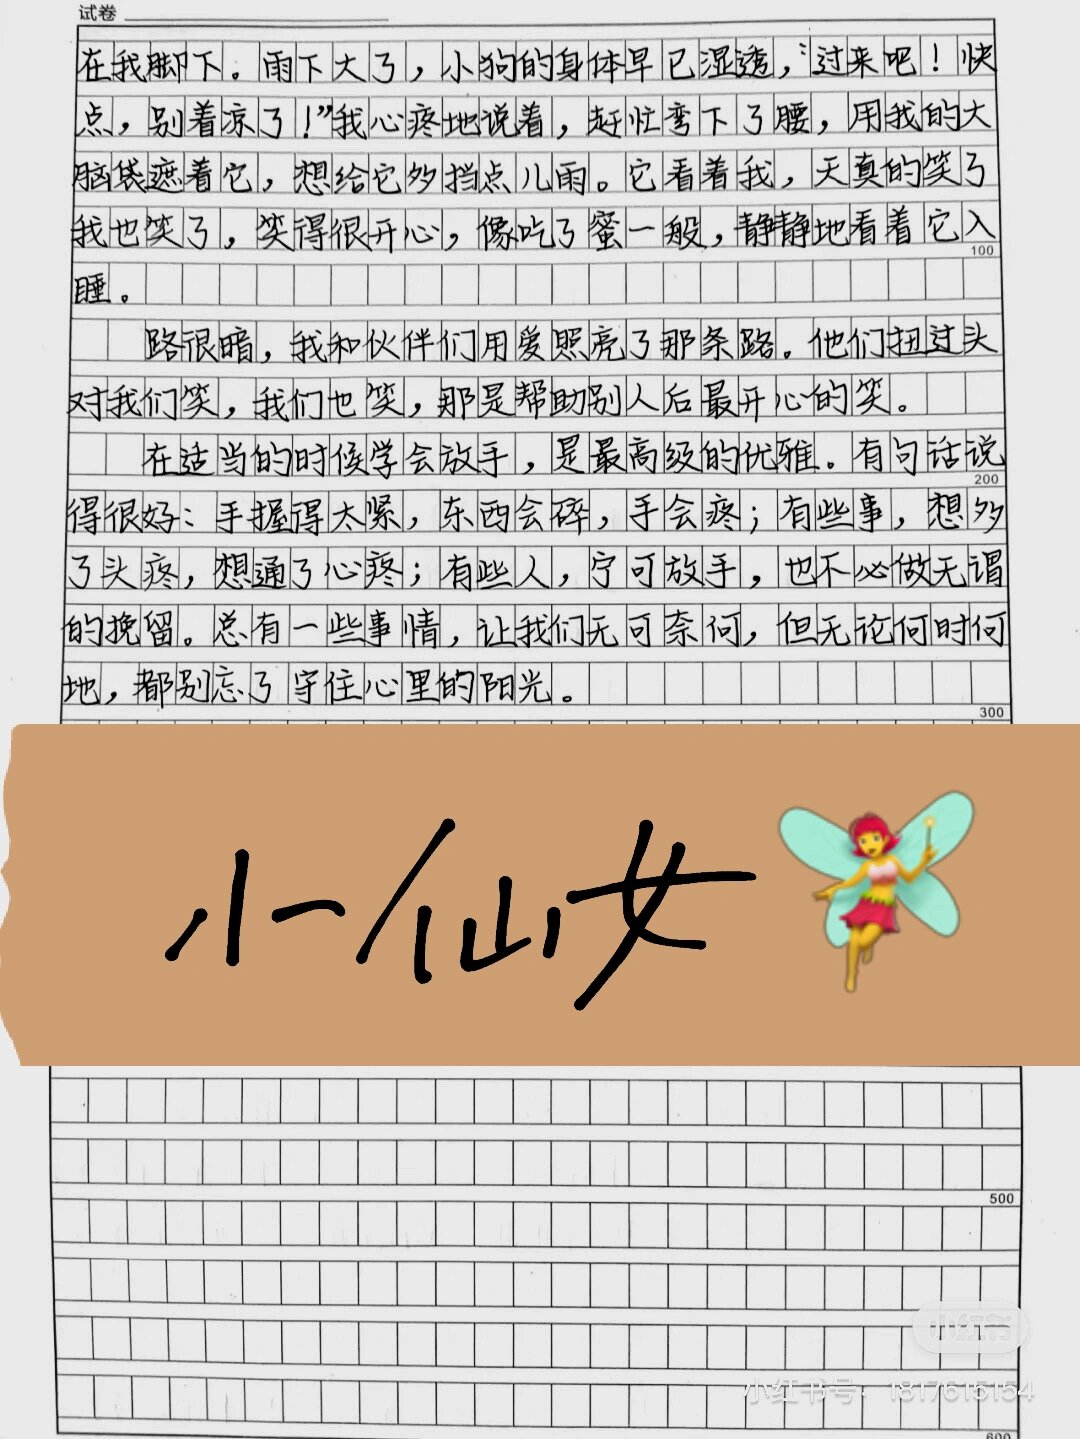 试卷
在我脚下。雨下大了，小狗的身体早已湿透，“过来吧！快
点，别着凉了！”我心疼地说着，赶忙弯下了腰，用我的大
脑袋遮着它，想给它多挡点儿雨。它看着我，天真的笑了
我也笑了，笑得很开心，像吃了蜜一般，静静地看着它入
100
睡。
路很暗，我和伙伴们用爱照亮了那条路。他们扭过头
对我们笑，我们也笑，那是帮助别人后最开心的笑。
在适当的时候学会放手，是最高级的优雅。有句话说
200
得很好：手握得太紧，东西会碎，手会疼；有些事，想多
了头疼，想通了心疼；有些人，宁可放手，也不必做无谓
的挽留。总有一些事情，让我们无可奈何，但无论何时何
地，都别忘了守住心里的阳光。
300
小一仙女
500
小红书
小红书号：1817615154
600